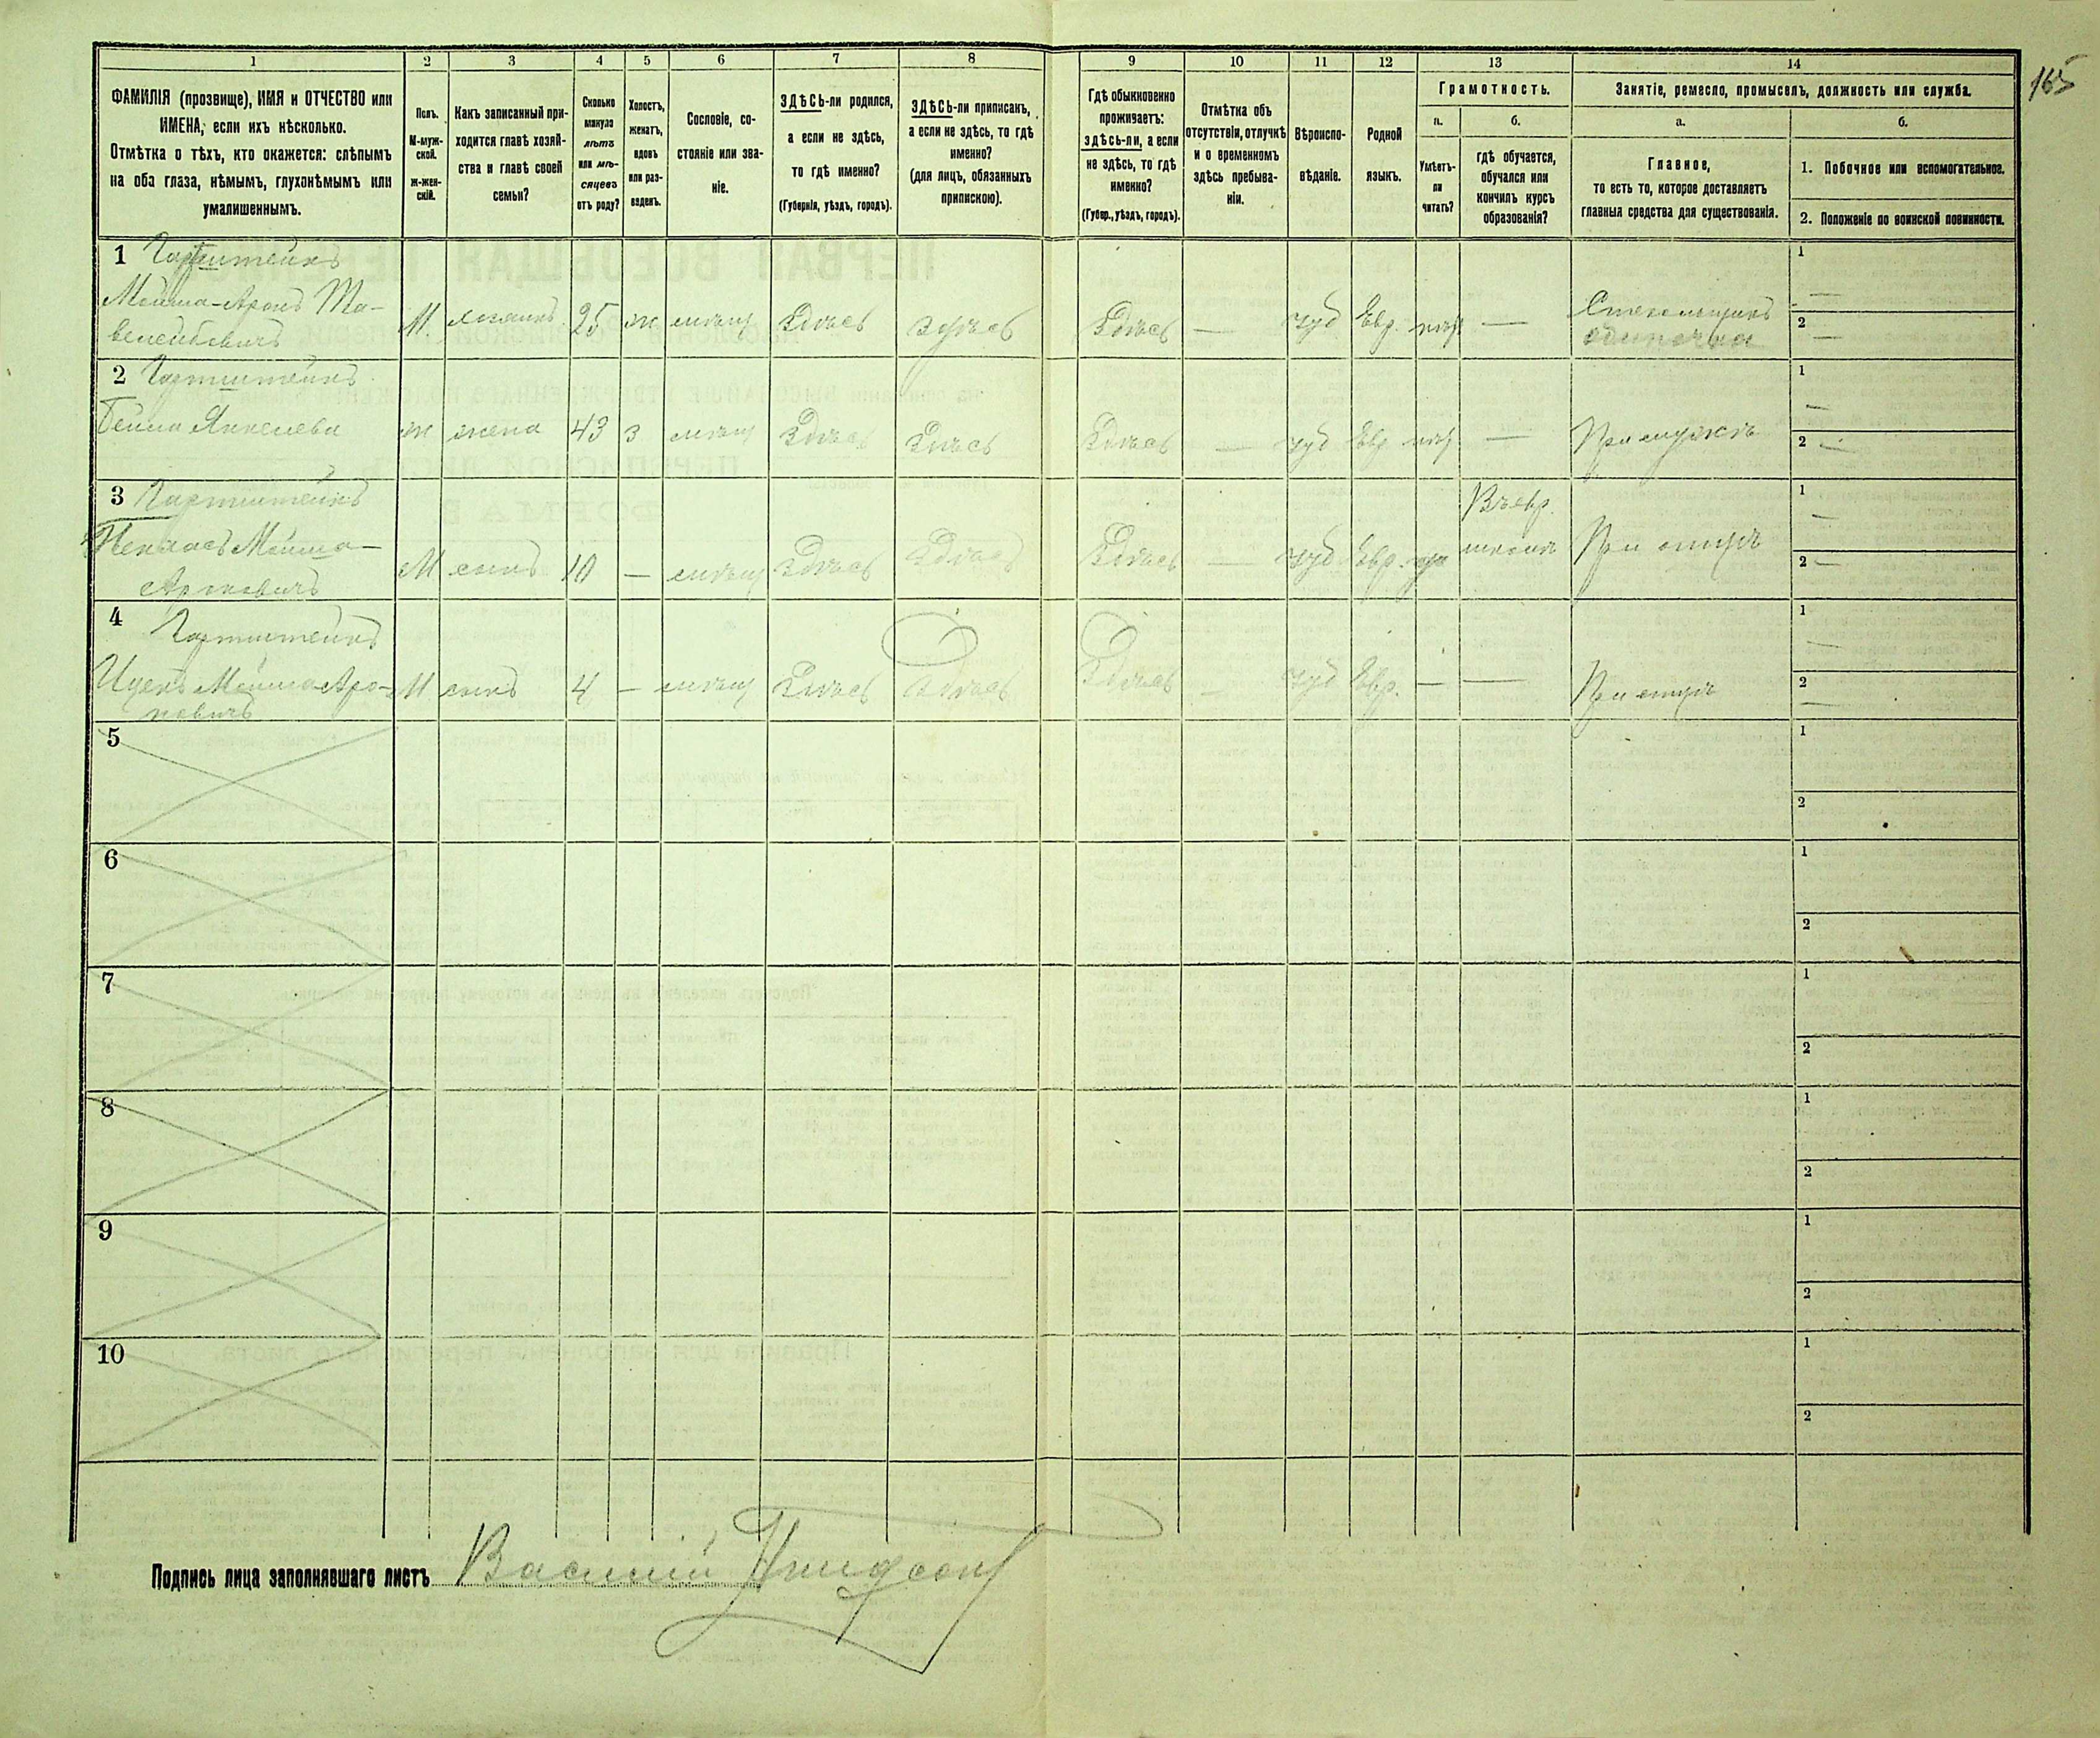 165
1
2
3
4
5
6
7
8
9
10
11
12
13
14
ФАМИЛІЯ (прозвище), ИМЯ и ОТЧЕСТВО или
ИМЕНА, если ихъ нѣсколько.
Отмѣтка о тѣхъ, кто окажется: слѣпымъ
на оба глаза, нѣмымъ, глухонѣмымъ или
умалишеннымъ.
Полъ.
М-муж-
ской.
ж-жен-
скій.
Какъ записанный при-
ходится главѣ хозяй-
ства и главѣ своей
семьи?
Сколько
минуло
лѣтъ
или мѣ-
сяцевъ
отъ роду?
Холостъ,
женатъ,
вдовъ
или раз-
веденъ.
Сословіе, со-
стояніе или зва-
ніе.
ЗДѢСЬ-ли родился,
а если не здѣсь,
то гдѣ именно?
(Губернія, уѣздъ, городъ).
ЗДѢСЬ-ли приписанъ,
а если не здѣсь, то гдѣ
именно?
(для лицъ, обязанныхъ
припискою).
Гдѣ обыкновенно
проживаетъ:
здѣсь-ли, а если
не здѣсь, то гдѣ
именно?
(Губер., уѣздъ, городъ).
Отмѣтка объ
отсутствіи, отлучкѣ
и о временномъ
здѣсь пребыва-
ніи.
Вѣроиспо-
вѣданіе.
Родной
языкъ.
Грамотность.
а.
Умѣетъ-
ли
читать?
б.
гдѣ обучается,
обучался или
кончилъ курсъ
образованія?
Занятіе, ремесло, промыселъ, должность или служба.
а.
Главное,
то есть то, которое доставляетъ
главныя средства для существованія.
б.
1. Побочное или вспомогательное.
2. Положеніе по воинской повинности.
1 Гартштейнъ
Мойша-Аронъ
М. 25 ж мѣщ Здѣсь Здѣсь Здѣсь — іуд Евр. —
одиночка
1 —
2 —
2 Гартштейнъ
Бейла Янкелева
ж жена 43 з мѣщ Здѣсь Здѣсь Здѣсь — іуд Евр —
При мужѣ
1 —
2 —
3 Гартштейнъ
Мойша-
Ароновичъ
М сынъ 10 — мѣщ Здѣсь Здѣсь Здѣсь — іуд Евр.
Въ евр.
школѣ
При отцѣ
1 —
2 —
4 Гартштейнъ
Мойша-Аро-
новичъ
М сынъ 4 — мѣщ Здѣсь Здѣсь Здѣсь — іуд Евр. — —
При отцѣ
1 —
2 —
5
1
2
6
1
2
7
1
2
8
1
2
9
1
2
10
1
2
Подпись лица заполнявшаго листъ Василій